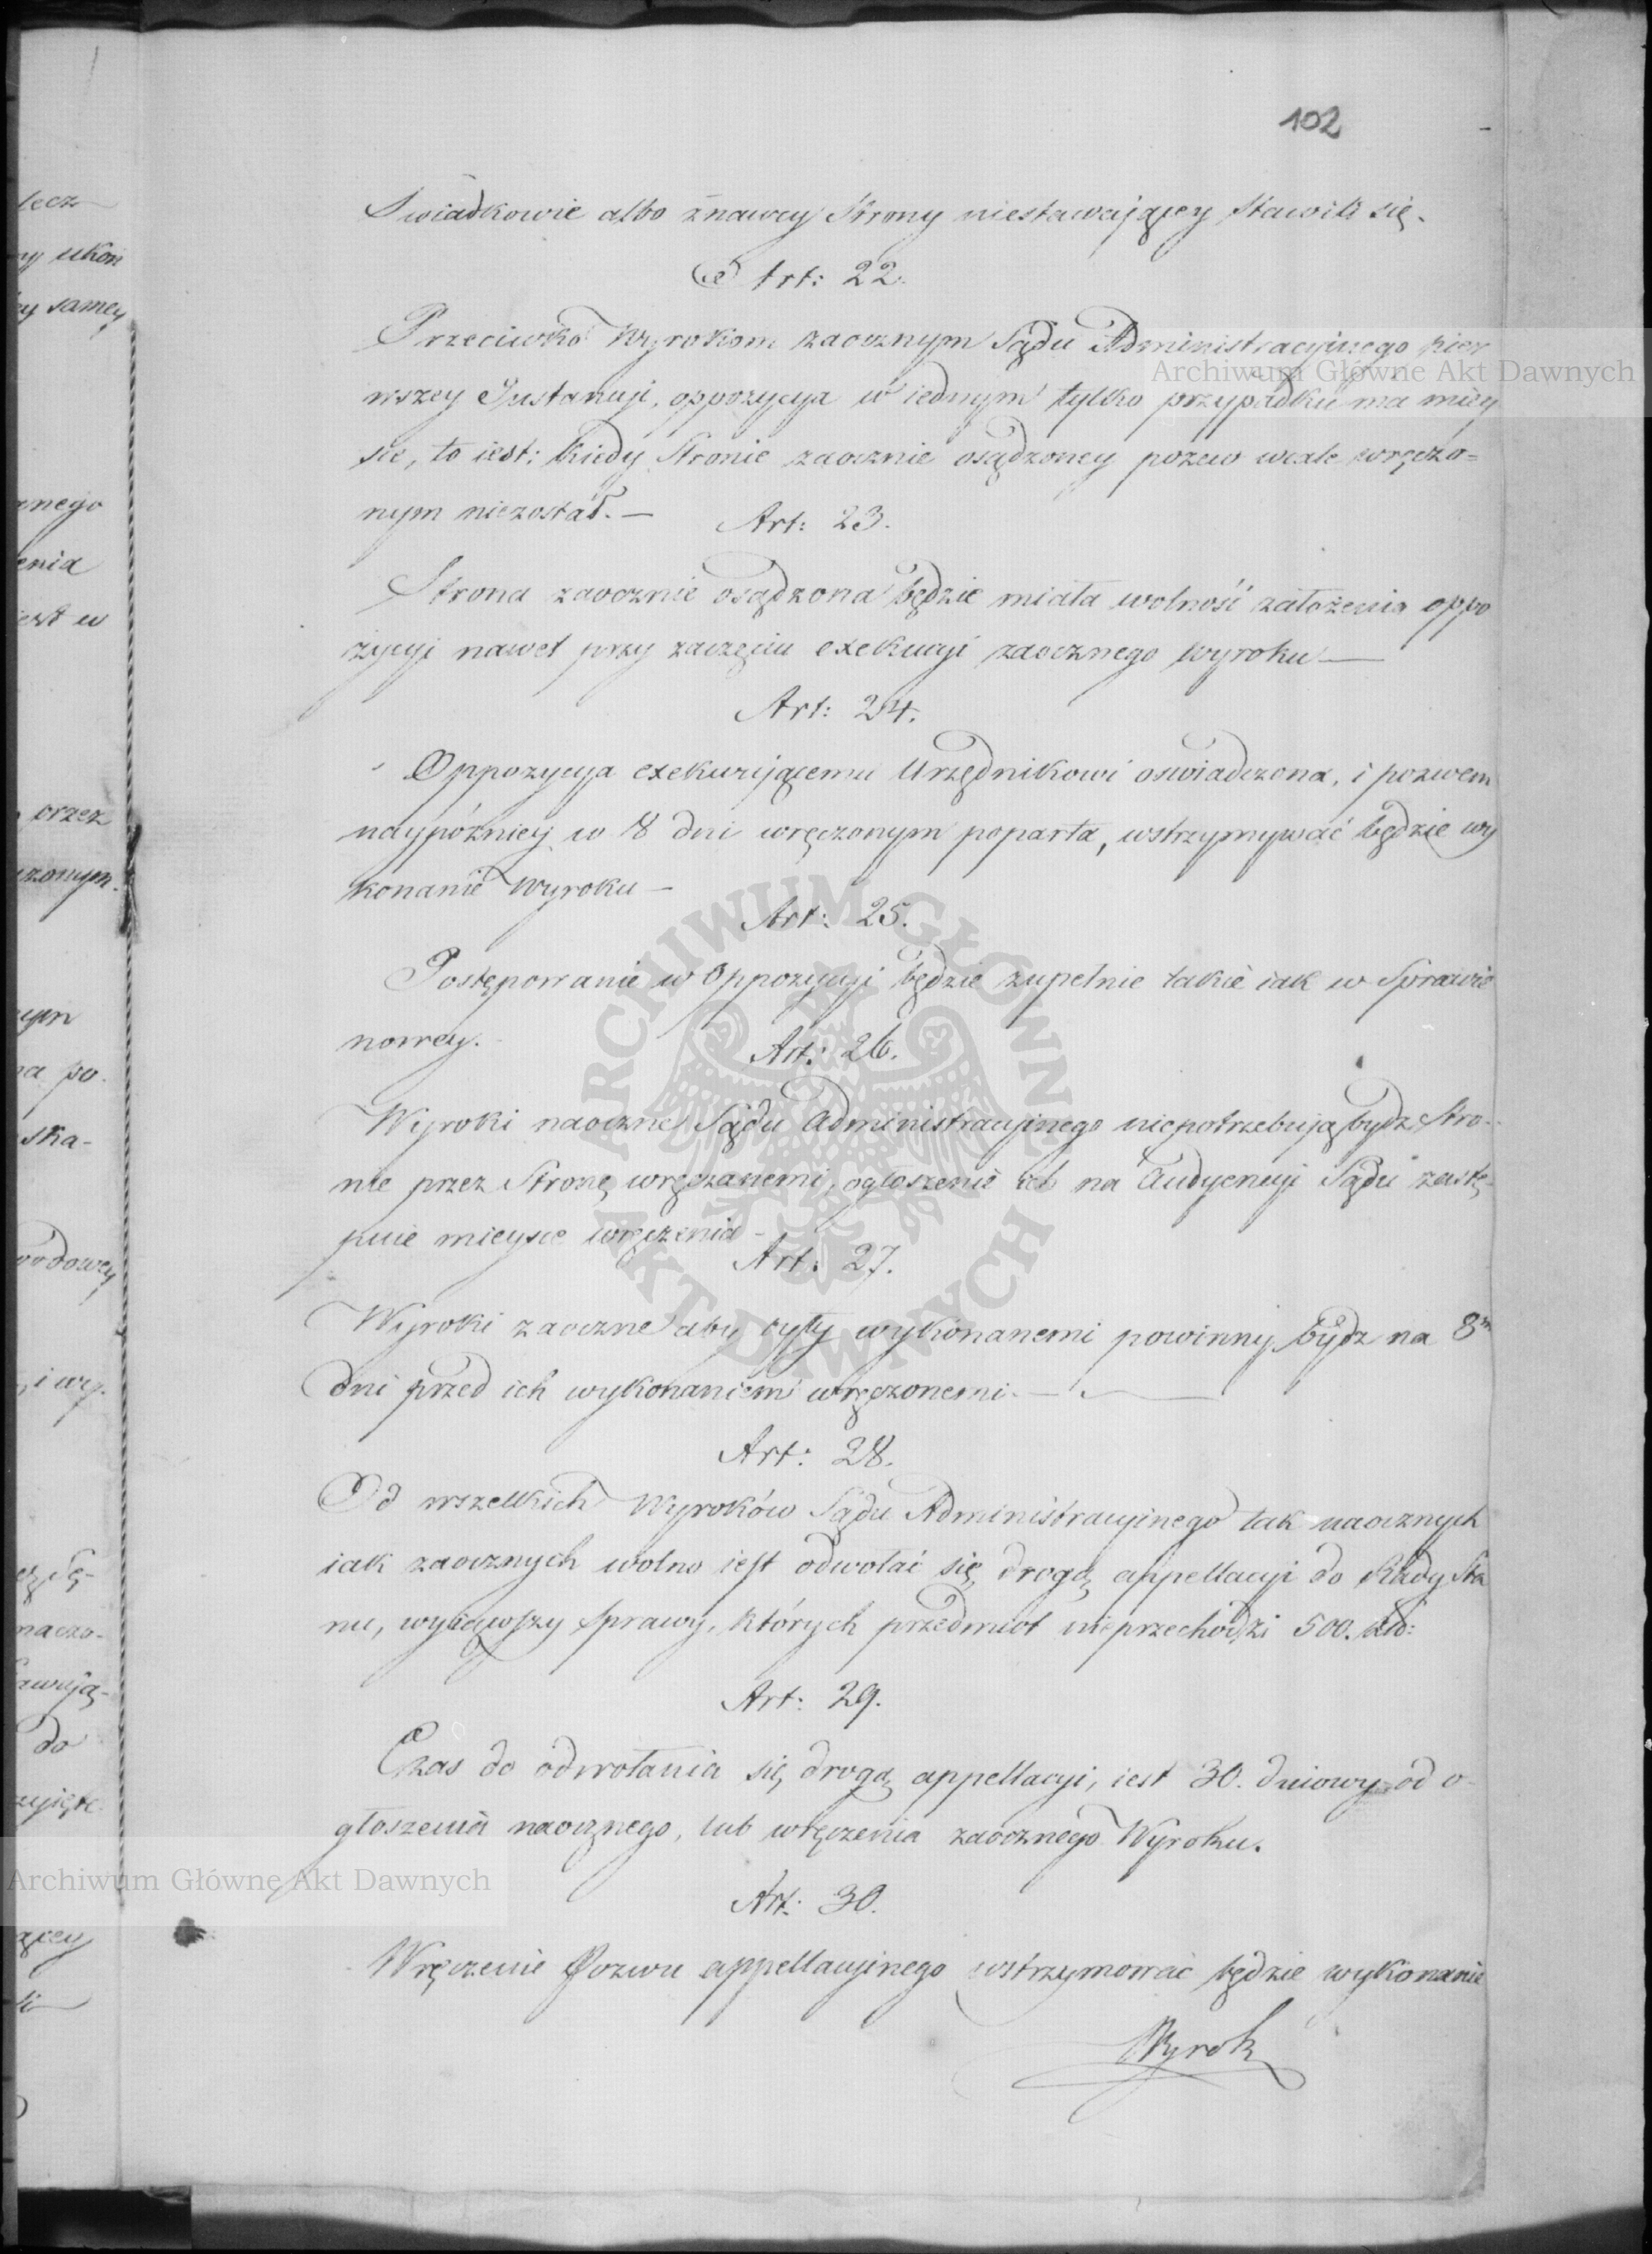 102
Swiadkowie albo znawcy Strony niestawaiącey stawili się.
Art: 22.
Przeciwko Wyrokom zaocznym Sądu Administracyinego pier
wszey Instancyi, oppozycya w iednym tylko przypadku ma miey
sce, to iest: kiedy Stronie zaocznie osądzoney pozew wcale wręczo=
nym niezostał. —
Art: 23.
Strona zaocznie osądzona będzie miała wolność założenia oppo
zycyi nawet przy zaczęciu exekucyi zaocznego wyroku —
Art: 24.
Oppozycya exekwuiącemu Urzędnikowi oswiadczona, i pozwem
naypóźniey w 8 dni wręczonym poparta, wstrzymywać będzie wy
konanie Wyroku —
Art: 25.
Postępowanie w Oppozycyi będzie zupełnie takie iak w Sprawie
nowey.
Art: 26.
Wyroki naoczne Sądu Administracyinego niepotrzebuią bydz Stro-
nie przez Stronę wręczanemi, ogłoszenie ich na Audyencyi Sądu zastę-
puie mieysce wręczenia -
Art: 27.
Wyroki zaoczne aby były wykonanemi powinny bydz na 8m
dni przed ich wykonaniem wręczonemi. —
Art: 28.
Od wszelkich Wyroków Sądu Administracyinego tak naocznych
iak zaocznych wolno iest odwołać się drogą appellacyi do Rady Sta
nu, wyiąwszy sprawy, których przedmiot nieprzechodzi 500. Zło:
Art: 29.
Czas do odwołania się drogą appellacyi, iest 30. dniowy od o-
głoszenia naocznego, lub wręczenia zaocznego Wyroku.
Art: 30.
Wręczenie Pozwu appellacyinego wstrzymować będzie wykonanie
Wyrok
lecz
ukoń
samey
anego
enia
iest w
przez
czonym.
na po.
ska-
i wy.
do
Archiwum Główne Akt Dawnych
Archiwum Główne Akt Dawnych
ARCHIWUM GŁÓWNE
AKT DAWNYCH